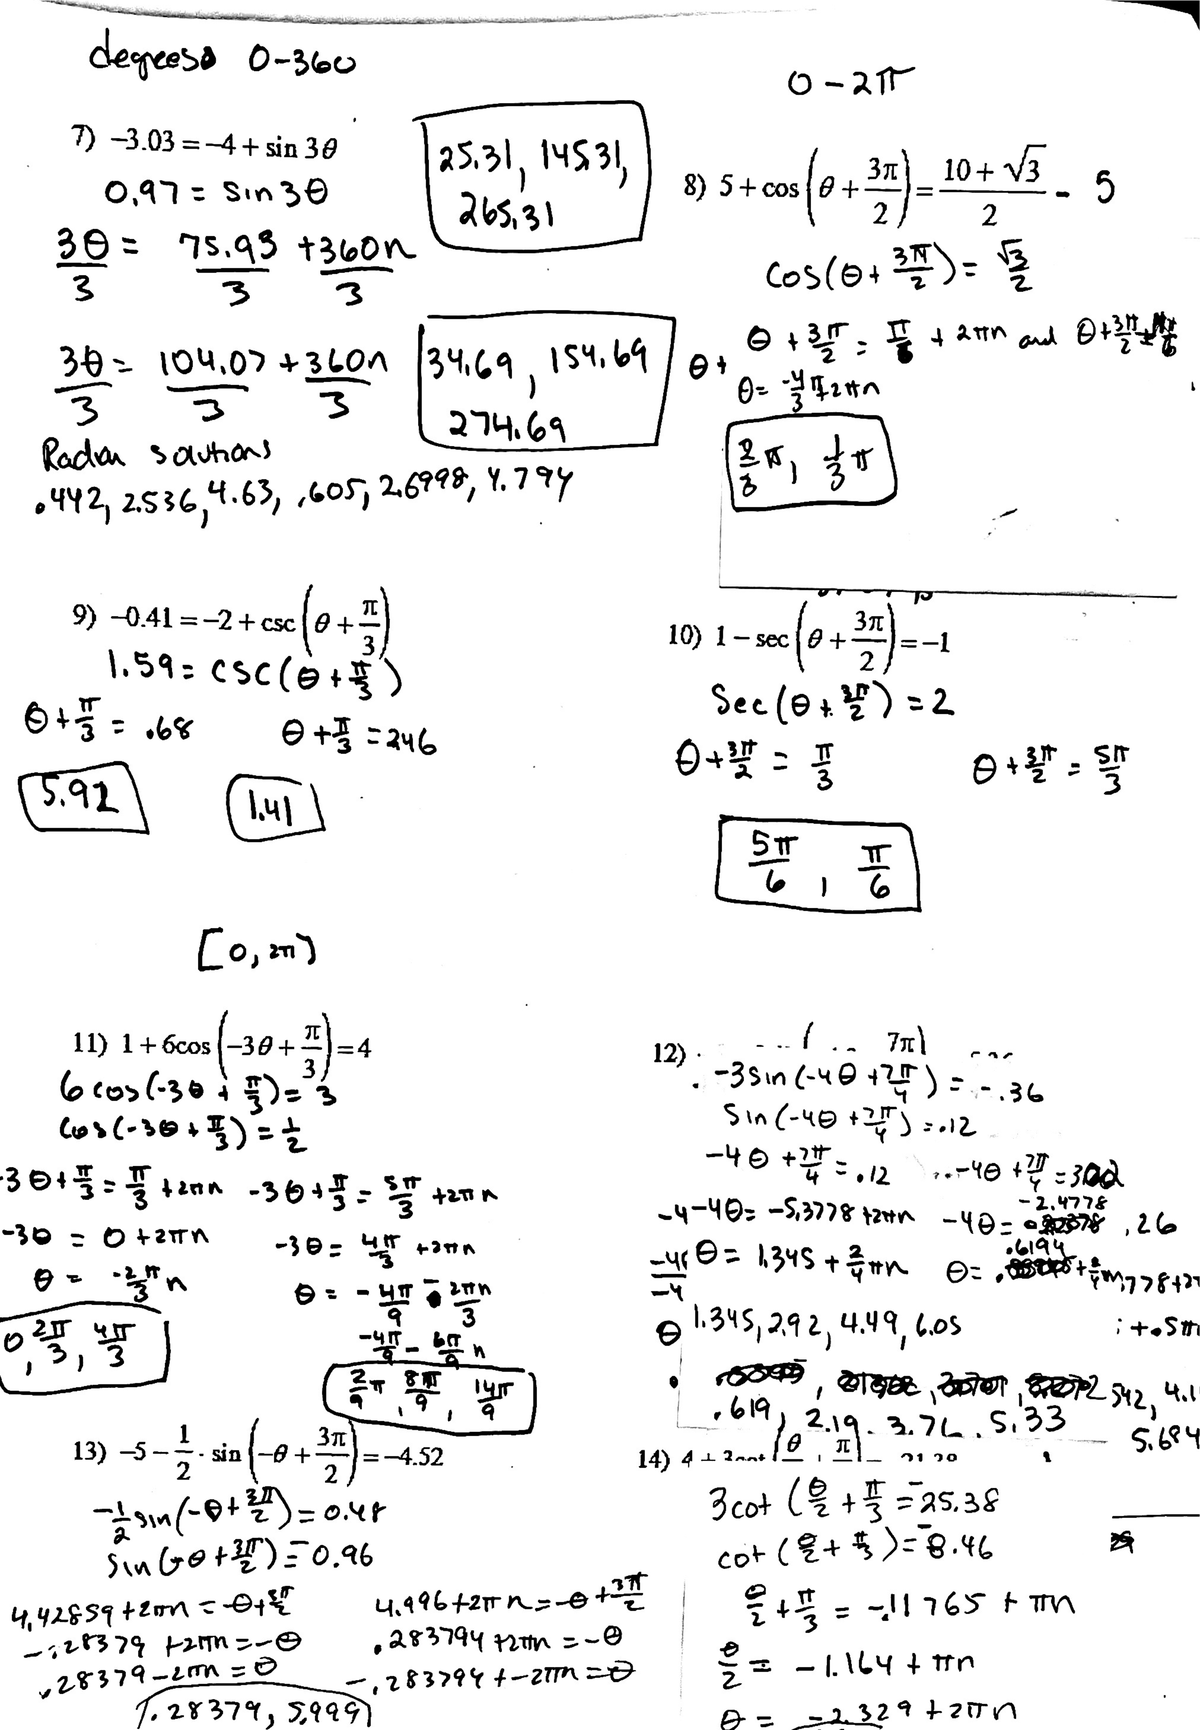 degrees 0-360
0 - 2π
7) -3.03 = -4 + sin 3θ
0.97 = sin 3θ
3θ/3 = 75.93/3 + 360n/3
25.31, 145.31,
265.31
3θ/3 = 104.07/3 + 360n/3
34.69, 154.69
274.69
Radian solutions
.442, 2.536, 4.63, .605, 2.6998, 4.794
8) 5 + cos(θ + 3π/2) = (10 + √3)/2 - 5
cos(θ + 3π/2) = √3/2
θ + 3π/2 = π/6 + 2πn and θ + 3π/2
θ +
θ = -4/3 π + 2πn
2/3 π, 1/3 π
9) -0.41 = -2 + csc(θ + π/3)
1.59 = csc(θ + π/3)
θ + π/3 = .68 θ + π/3 = 246
5.92 1.41
10) 1 - sec(θ + 3π/2) = -1
sec(θ + 3π/2) = 2
θ + 3π/2 = π/3 θ + 3π/2 = 5π/3
5π/6, π/6
[0, 2π)
11) 1 + 6cos(-3θ + π/3) = 4
6 cos(-3θ + π/3) = 3
cos(-3θ + π/3) = 1/2
-3θ + π/3 = π/3 + 2πn -3θ + π/3 = 5π/3 + 2πn
-3θ = 0 + 2πn -3θ = 4π/3 + 2πn
θ = -2π/3 n θ = -4π/9 - 2πn/3
-4π/9 - 6π/9 n
0, 2π/3, 4π/3
2/9 π, 8π/9, 14π/9
12)
7π
-3 sin(-4θ + 7π/4) = -.36
sin(-4θ + 7π/4) = .12
-4θ + 7π/4 = .12 -4θ + 7π/4 = 3.02
-2.4778
-4 -4θ = -5.3778 + 2πn -4θ = .26
.6194
θ = 1.345 + 2/4 πn θ =
θ 1.345, 2.92, 4.49, 6.05
.619, 2.19, 3.76, 5.33
5.694
13) -5 - 1/2 · sin(-θ + 3π/2) = -4.52
-1/2 sin(-θ + 3π/2) = 0.48
sin(-θ + 3π/2) = -0.96
4.42859 + 2πn = -θ + 3π/2 4.996 + 2πn = -θ + 3π/2
-.28379 + 2πn = -θ .283794 + 2πn = -θ
.28379 - 2πn = θ -.283794 + -2πn = θ
.28379, 5.999
14)
3cot(θ/2 + π/3 = -25.38
cot(θ/2 + π/3) = -8.46
θ/2 + π/3 = -.11765 + πn
θ/2 = -1.164 + πn
θ = -2.329 + 2πn